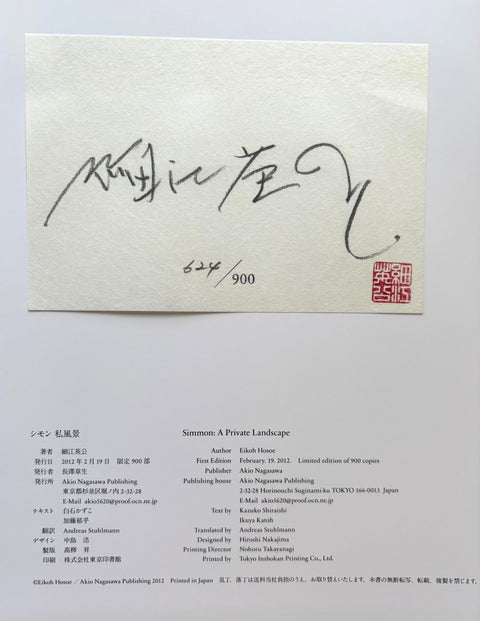 細江英公
624/900
細江英公
シモン 私風景
著者 細江英公
発行日 2012年2月19日 限定900部
発行者 長澤章生
発行所 Akio Nagasawa Publishing
東京都杉並区堀ノ内 2-32-28
E-Mail akio5620@proof.ocn.ne.jp
テキスト 白石かずこ
加藤郁乎
翻訳 Andreas Stuhlmann
デザイン 中島 浩
製版 高栁 昇
印刷 株式会社東京印書館
Simmon: A Private Landscape
Author Eikoh Hosoe
First Edition February. 19. 2012. Limited edition of 900 copies
Publisher Akio Nagasawa
Publishing house Akio Nagasawa Publishing
2-32-28 Horinouchi Suginami-ku TOKYO 166-0013 Japan
E-Mail akio5620@proof.ocn.ne.jp
Text by Kazuko Shiraishi
Ikuya Katoh
Translated by Andreas Stuhlmann
Designed by Hiroshi Nakajima
Printing Director Noboru Takayanagi
Printed by Tokyo Inshokan Printing Co., Ltd.
©Eikoh Hosoe／Akio Nagasawa Publishing 2012 Printed in Japan 乱丁、落丁は送料当社負担のうえ、お取り替えいたします。本書の無断転写、転載、複製を禁じます。